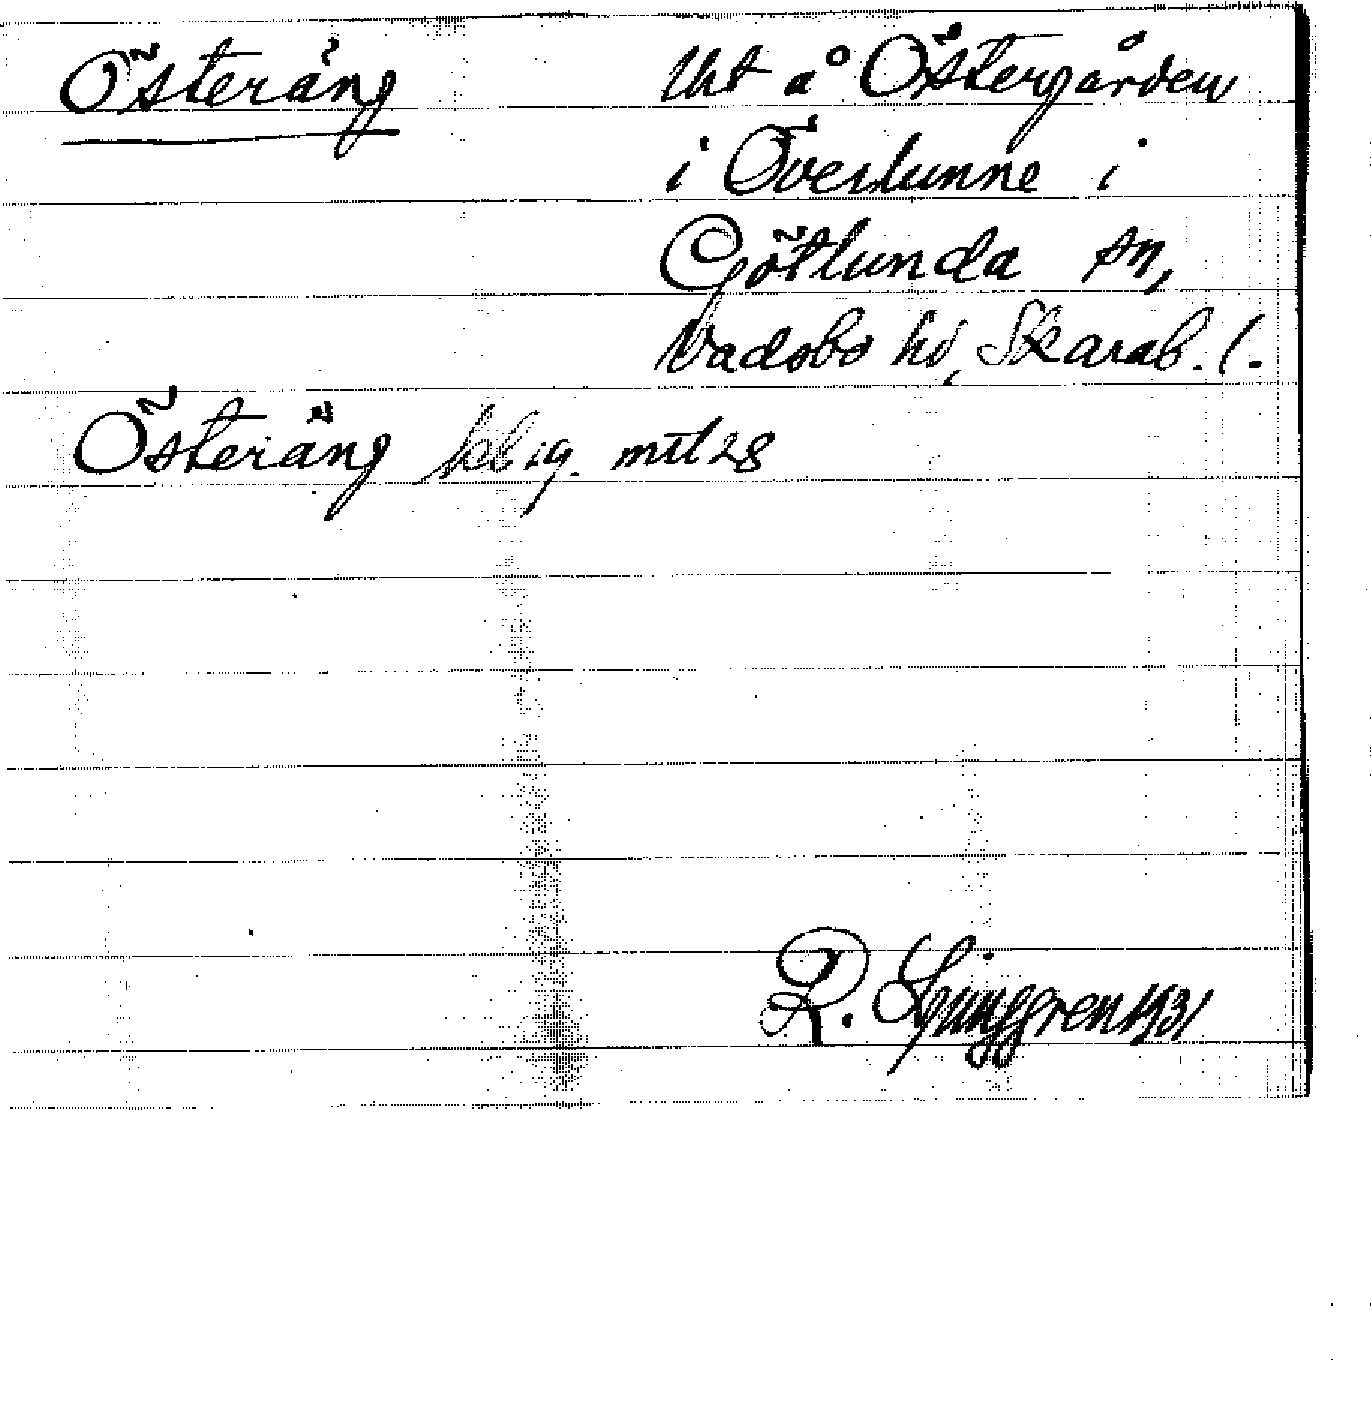 Österäng Uht å Östergården
i Överlunne i
Götlunda sn,
Vadsbo hd, Skarab. l.
Österäng
R. Ljunggren 1931